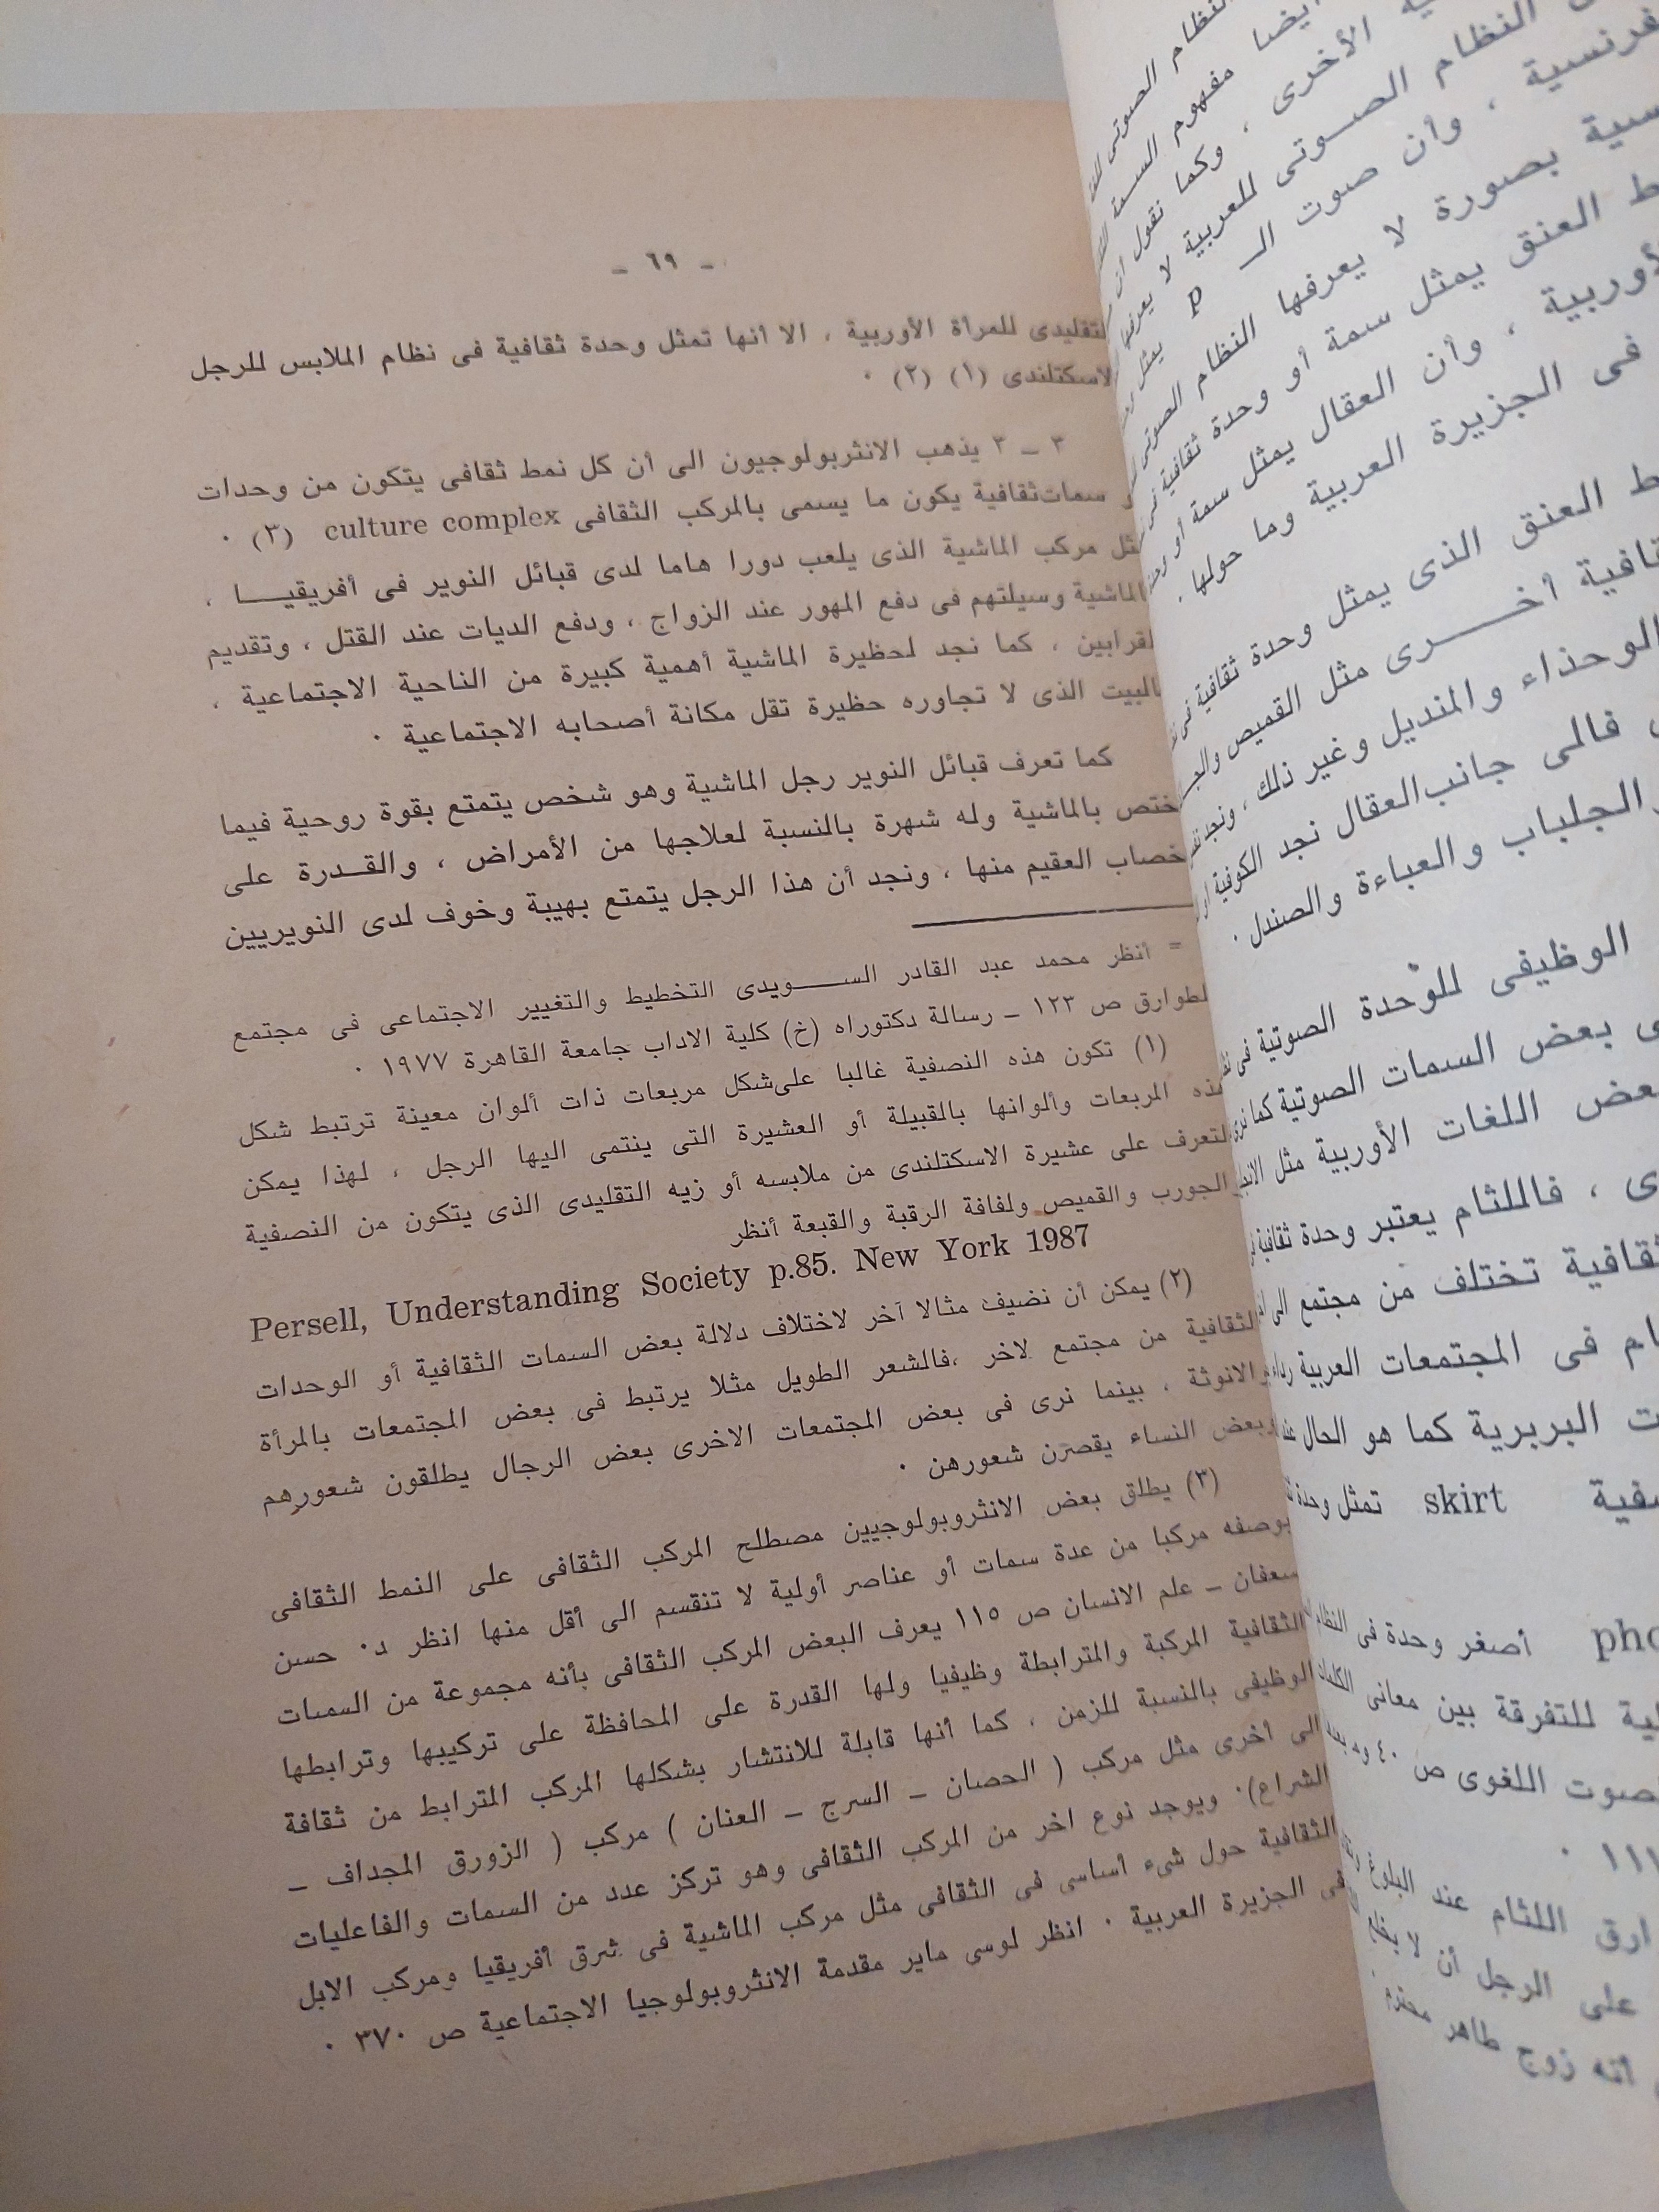 - ٦٩ -
التقليدى للمرأة الأوربية ، الا أنها تمثل وحدة ثقافية فى نظام الملابس للرجل
الاسكتلندى (١) (٢) .
٣ - ٣ يذهب الانثربولوجيون الى أن كل نمط ثقافى يتكون من وحدات
سمات ثقافية يكون ما يسمى بالمركب الثقافى culture complex (٣) .
مركب الماشية الذى يلعب دورا هاما لدى قبائل النوير فى أفريقيـــا ،
الماشية وسيلتهم فى دفع المهور عند الزواج ، ودفع الديات عند القتل ، وتقديم
القرابين ، كما نجد لحظيرة الماشية أهمية كبيرة من الناحية الاجتماعية ،
فالبيت الذى لا تجاوره حظيرة تقل مكانة أصحابه الاجتماعية .
كما تعرف قبائل النوير رجل الماشية وهو شخص يتمتع بقوة روحية فيما
يختص بالماشية وله شهرة بالنسبة لعلاجها من الأمراض ، والقـدرة على
اخصاب العقيم منها ، ونجد أن هذا الرجل يتمتع بهيبة وخوف لدى النويريين
= أنظر محمد عبد القادر الســـويدى التخطيط والتغيير الاجتماعى فى مجتمع
الطوارق ص ١٢٣ - رسالة دكتوراه (خ) كلية الاداب جامعة القاهرة ١٩٧٧ .
(١) تكون هذه النصفية غالبا على شكل مربعات ذات ألوان معينة ترتبط شكل
هذه المربعات وألوانها بالقبيلة أو العشيرة التى ينتمى اليها الرجل ، لهذا يمكن
التعرف على عشيرة الاسكتلندى من ملابسه أو زيه التقليدى الذى يتكون من النصفية
والجورب والقميص ولفافة الرقبة والقبعة أنظر
Persell, Understanding Society p.85. New York 1987
(٢) يمكن أن نضيف مثالا آخر لاختلاف دلالة بعض السمات الثقافية أو الوحدات
الثقافية من مجتمع لاخر ،فالشعر الطويل مثلا يرتبط فى بعض المجتمعات بالمرأة
والانوثة ، بينما نرى فى بعض المجتمعات الاخرى بعض الرجال يطلقون شعورهم
وبعض النساء يقصرن شعورهن .
(٣) يطلق بعض الانثروبولوجيين مصطلح المركب الثقافى على النمط الثقافى
بوصفه مركبا من عدة سمات أو عناصر أولية لا تنقسم الى أقل منها انظر د. حسن
سعفان - علم الانسان ص ١١٥ يعرف البعض المركب الثقافى بأنه مجموعة من السمات
الثقافية المركبة والمترابطة وظيفيا ولها القدرة على المحافظة على تركيبها وترابطها
الوظيفى بالنسبة للزمن ، كما أنها قابلة للانتشار بشكلها المركب المترابط من ثقافة
الى أخرى مثل مركب ( الحصان - السرج - العنان ) مركب ( الزورق المجداف -
الشراع). ويوجد نوع اخر من المركب الثقافى وهو تركز عدد من السمات والفاعليات
الثقافية حول شىء أساسى فى الثقافى مثل مركب الماشية فى شرق أفريقيا ومركب الابل
فى الجزيرة العربية . انظر لوسى ماير مقدمة الانثروبولوجيا الاجتماعية ص ٣٧٠ .
النظام الصوتى
أيضا مفهوم السمة
الأخرى ، وكما نقول
النظام الصوتى للعربية لا
فرنسية ، وأن صوت الـ P يمثل
بصورة لا يعرفها النظام الصوتى
العنق يمثل سمة أو وحدة ثقافية
، وأن العقال يمثل سمة أو
فى الجزيرة العربية وما حولها .
العنق الذى يمثل وحدة ثقافية فى
أخـــرى مثل القميص
والحذاء والمنديل وغير ذلك ، ونجد
فالى جانب العقال نجد الكوفية
الجلباب والعباءة والصندل .
الوظيفى للوحدة الصوتية فى
بعض السمات الصوتية كما نرى
اللغات الأوربية مثل
، فاللثام يعتبر وحدة ثقافية
تختلف من مجتمع الى
فى المجتمعات العربية
البربرية كما هو الحال
skirt تمثل وحدة
أصغر وحدة فى النظام
للتفرقة بين معانى الكلمات
الصوت اللغوى ص ٤٠
اللثام عند البلوغ
على الرجل أن لا
أنه زوج طاهر